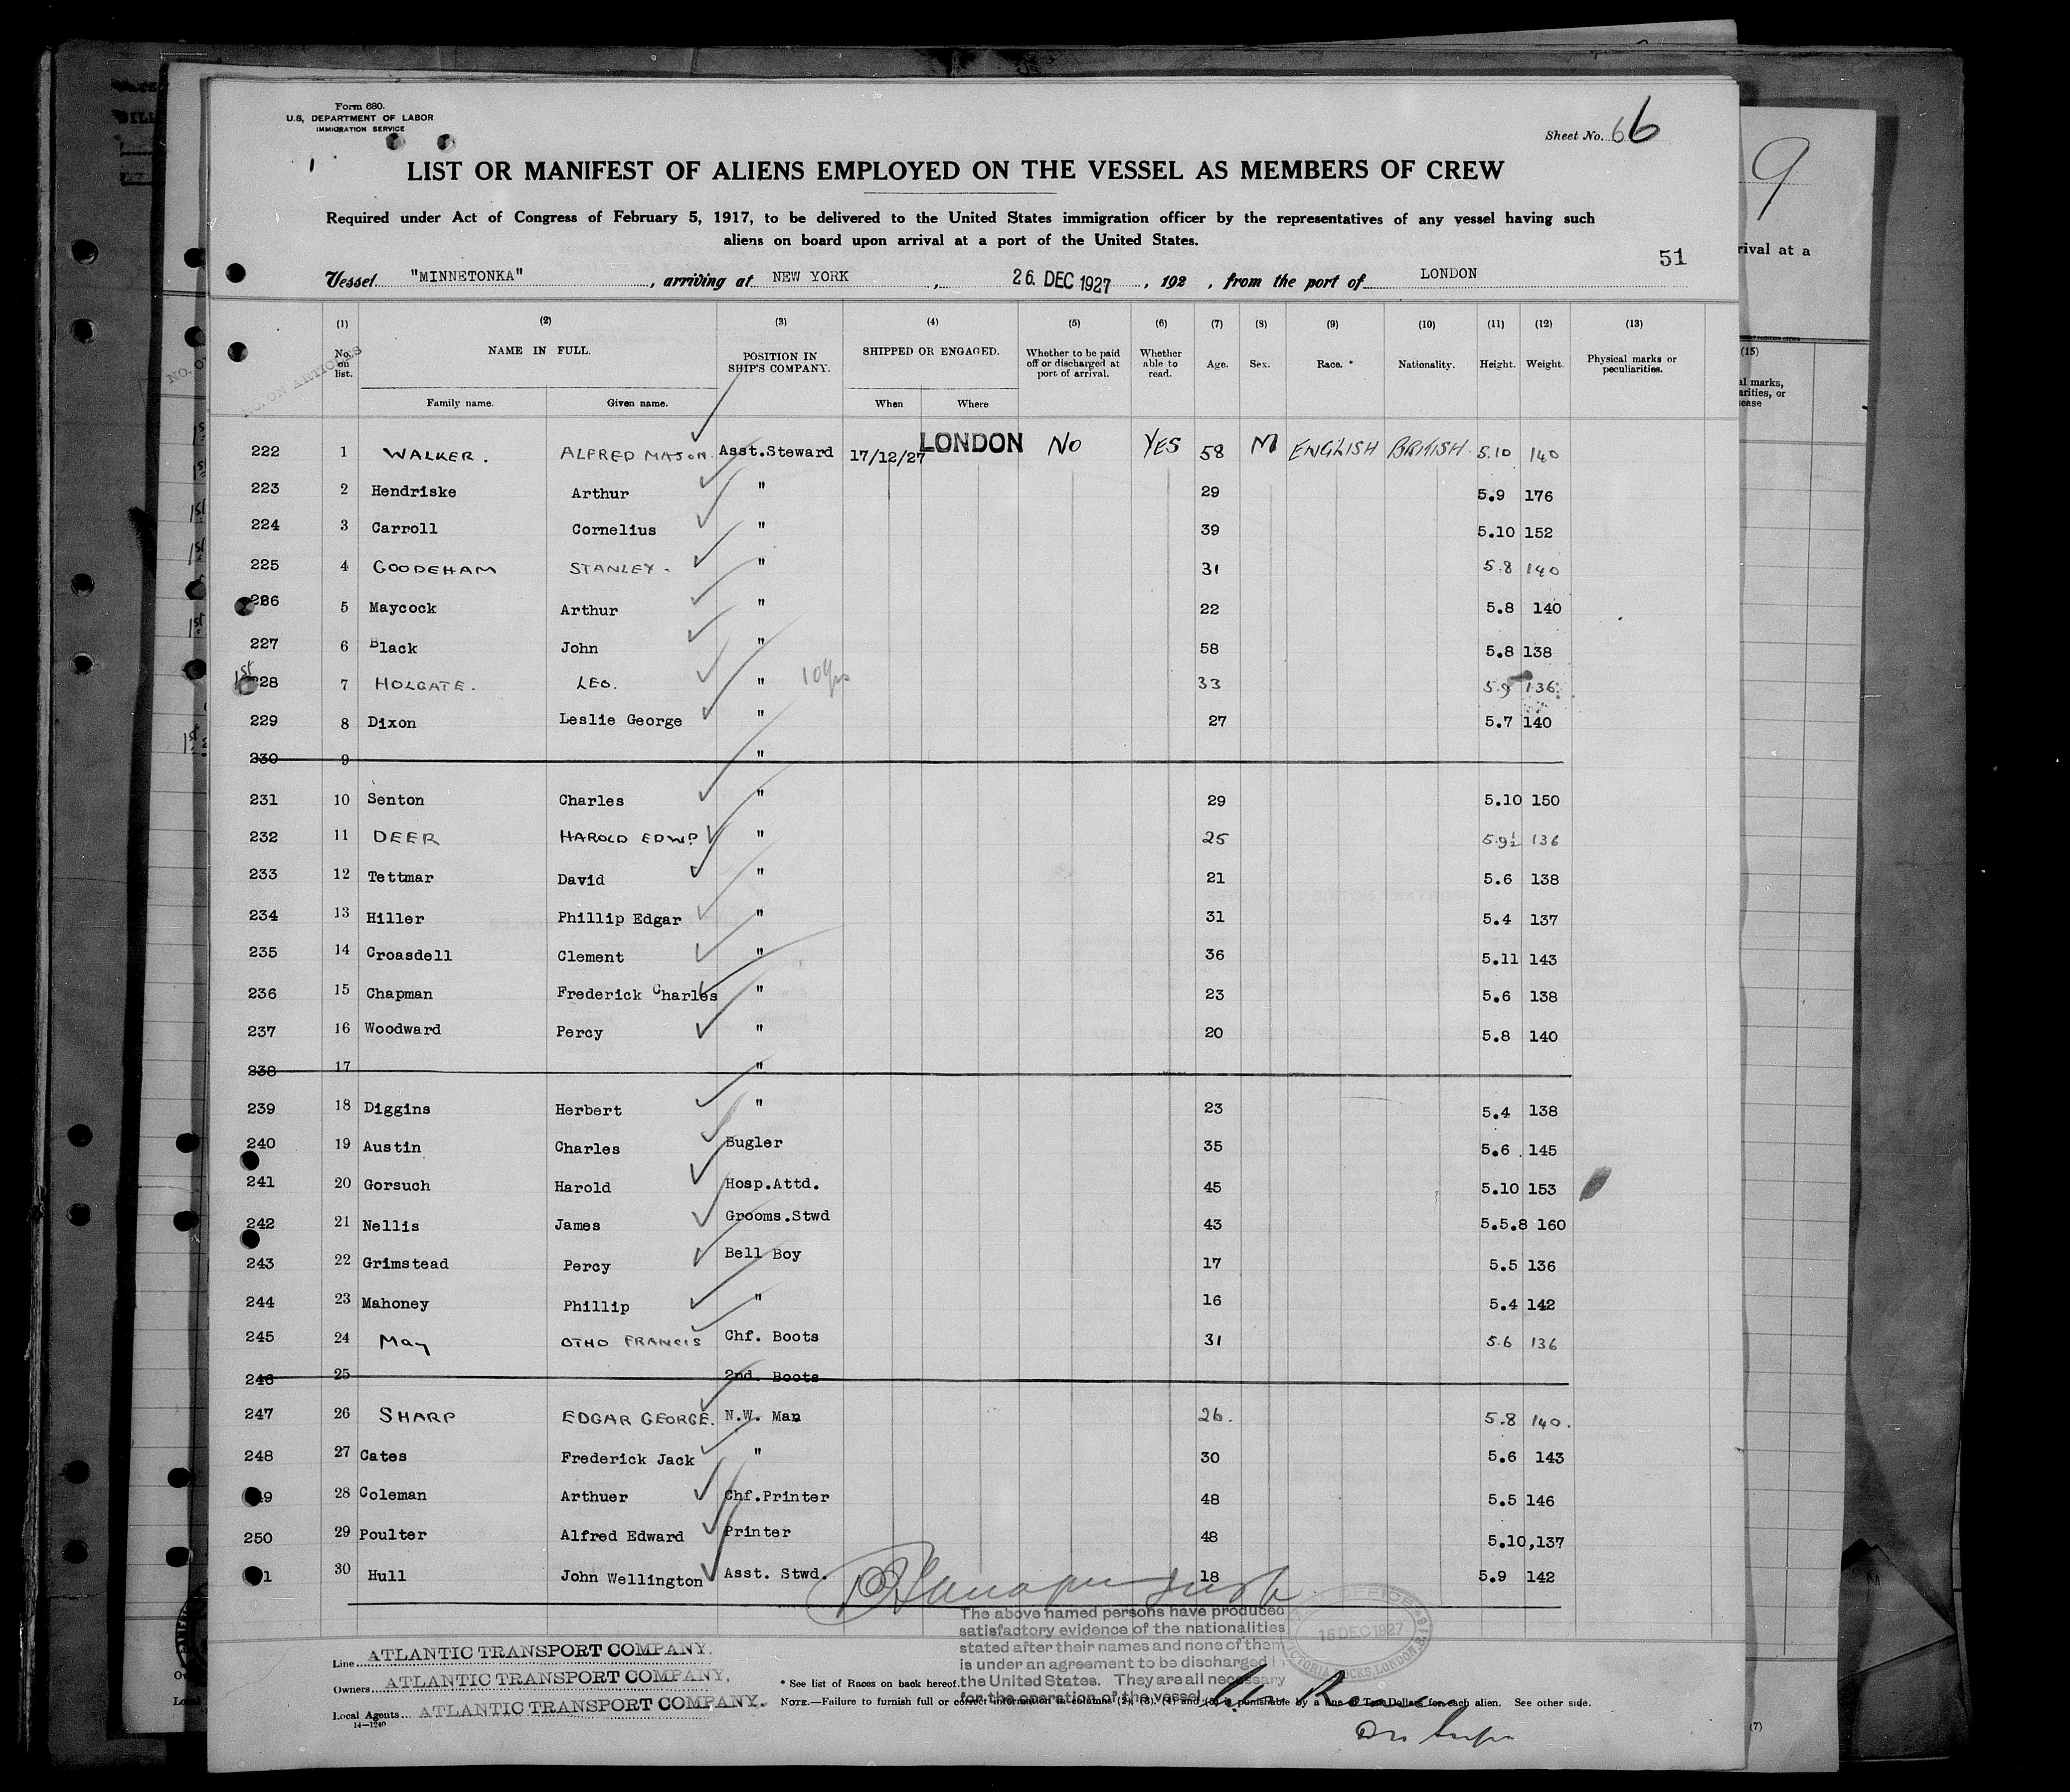 Form 680.
U.S. DEPARTMENT OF LABOR
IMMIGRATION SERVICE
Sheet No. 66
LIST OR MANIFEST OF ALIENS EMPLOYED ON THE VESSEL AS MEMBERS OF CREW
Required under Act of Congress of February 5, 1917, to be delivered to the United States immigration officer by the representatives of any vessel having such
aliens on board upon arrival at a port of the United States.
51
Vessel "MINNETONKA", arriving at NEW YORK, 26 DEC 1927, 192 , from the port of LONDON
(1) (2) (3) (4) (5) (6) (7) (8) (9) (10) (11) (12) (13)
NO. ON ARTICLES
No. on list. NAME IN FULL. POSITION IN SHIP'S COMPANY. SHIPPED OR ENGAGED. Whether to be paid off or discharged at port of arrival. Whether able to read. Age. Sex. Race. * Nationality. Height. Weight. Physical marks or peculiarities.
Family name. Given name. When Where
222 1 WALKER. ALFRED MASON. Asst.Steward 17/12/27 LONDON NO YES 58 M ENGLISH BRITISH. 5.10 140
223 2 Hendriske Arthur " 29 5.9 176
224 3 Carroll Cornelius " 39 5.10 152
225 4 GOODEHAM STANLEY. " 31 5.8 140
226 5 Maycock Arthur " 22 5.8 140
227 6 Black John " 58 5.8 138
1st 228 7 HOLGATE. LEO. " 10yrs 33 5.9 136
229 8 Dixon Leslie George " 27 5.7 140
230 9 "
231 10 Senton Charles " 29 5.10 150
232 11 DEER HAROLD EDWD " 25 5.9½ 136
233 12 Tettmar David " 21 5.6 138
234 13 Hiller Phillip Edgar " 31 5.4 137
235 14 Croasdell Clement " 36 5.11 143
236 15 Chapman Frederick Charles " 23 5.6 138
237 16 Woodward Percy " 20 5.8 140
238 17 "
239 18 Diggins Herbert " 23 5.4 138
240 19 Austin Charles Bugler 35 5.6 145
241 20 Gorsuch Harold Hosp.Attd. 45 5.10 153
242 21 Nellis James Grooms.Stwd 43 5.5.8 160
243 22 Grimstead Percy Bell Boy 17 5.5 136
244 23 Mahoney Phillip " 16 5.4 142
245 24 May OTHO FRANCIS Chf. Boots 31 5.6 136
246 25 2nd. Boots
247 26 SHARP EDGAR GEORGE. N.W. Man 26. 5.8 140.
248 27 Cates Frederick Jack " 30 5.6 143
9 28 Coleman Arthuer Chf.Printer 48 5.5 146
250 29 Poulter Alfred Edward Printer 48 5.10,137
1 30 Hull John Wellington Asst. Stwd. 18 5.9 142
The above named persons have produced
satisfactory evidence of the nationalities
stated after their names and none of them
is under an agreement to be discharged i
the United States. They are all necessary
for the operation of the vessel
16 DEC 1927
VICTORIA DOCKS, LONDON, E.16
Line ATLANTIC TRANSPORT COMPANY.
Owners ATLANTIC TRANSPORT COMPANY.
Local Agents ATLANTIC TRANSPORT COMPANY.
14—1240
* See list of Races on back hereof.
NOTE.—Failure to furnish full or correct information in columns (2), (3), (4) and (5) is punishable by a fine of Ten Dollars for each alien. See other side.
9
rival at a
(15)
al marks,
arities, or
sease
(7)